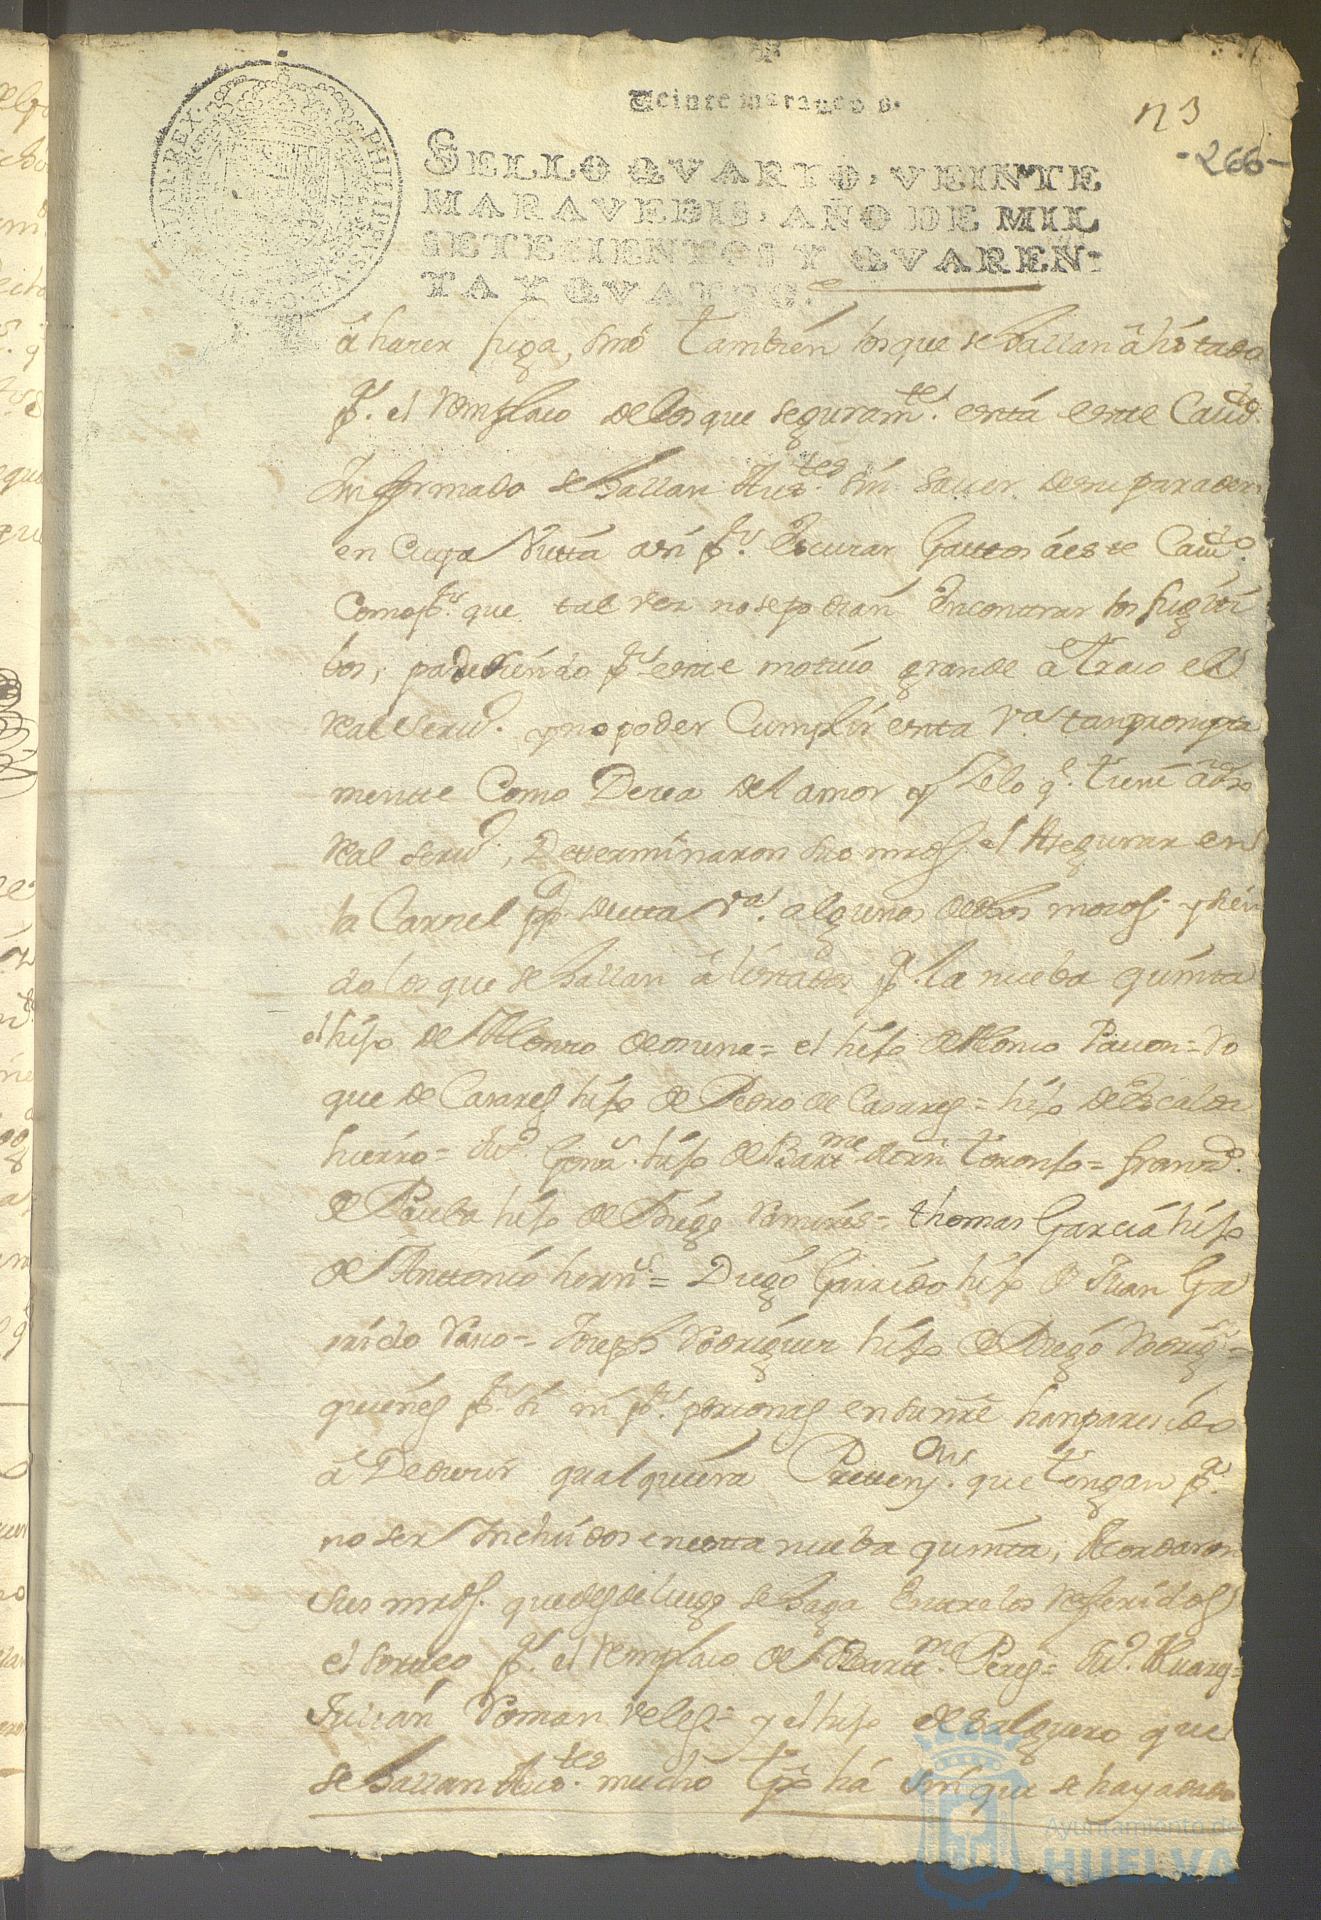 Veinte maravedis.
n 3
-266-
SELLO QVARTO, VEINTE
MARAVEDIS, AÑO DE MIL
SETECIENTOS Y QVAREN-
TA Y QVATRO.
PHILIPPUS V D G HISPANIAR REX
á hazer fuga, sino tambien los que se hallan alistados
pª. el Remplazo de los que seguramte. está este Caudo.
Informado se hallan Auztes. sin sauer de su paradero
en cuya Vista asi pr. Escusar Gasttos á este Caudo.
Como pr. que tal vez no se podran Encontrar los fugiti
bos, padesiendo pr. este motiuo grande atraso el
Real seruº. y no poder Cumplir esta Vª. tan prompta
mente Como Desea del amor y Zelo qe. tiene a dho
Real seruº., Determinaron sus mrds. el Asegurar en
la Carzel ppª. de esta Vª. algunos de dhos mozos; y sien
do los que se hallan alistados pª. la nueba quinta
el hijo de Alonso de osuna = el hijo de Alonso Pauon = Ro
que de Casares hijo de Pedro de Casares = hijo de Escalda
hierro = Juº. Gonz. hijo de Bartme. Toronjo = Franzco.
de Paula hijo de Diego Ramires = thomas Garcia hijo
de Anttonio hernz = Diego Garrido hijo de Juan Ga
rrido = Joseph Rodriguez hijo de Diego Rodrigz =
quienes pr. si ni pr. personas en su nre. han paresido
á Deducir qualquiera Prettenson. que tengan pª.
no ser Incluidos en esta nueba quinta; Acordaron
sus mrds. que desde luego se haga Entre los Referidos
el sorteo pª. el remplazo de Bartme. Peres = Juº. Suares =
Julian Roman Veles = y el hijo de Salguero que
se hallan Auztes. mucho tpo há sin que se haya dado
Ayuntamiento de
HUELVA